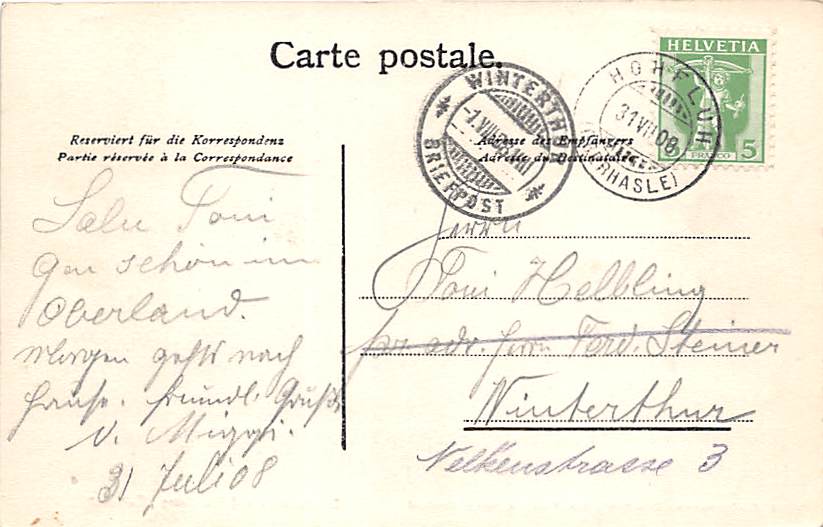 Carte postale.
HELVETIA
5 FRANCO 5
HOHFLUH
31 VII 08
(OBERHASLE)
WINTERTHUR
BRIEFPOST
Reserviert für die Korrespondenz
Partie réservée à la Correspondance
Adresse des Empfängers
Adresse du Destinataire
Salu Toni
schön im
Oberland.
Morgen gehts nach
Hause. freundl. Grüße
v. Miggi.
31 Juli 08
Herrn
Toni Helbling
pr adr. Herrn Ferd. Steiner
Winterthur
Nelkenstrasse 3